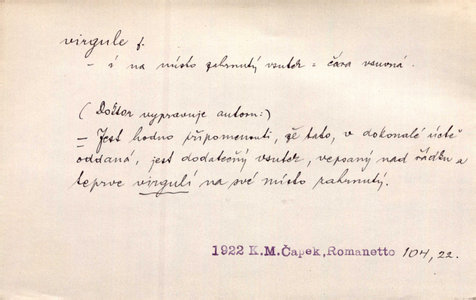 virgule f.
- i na místo zahrnutý vsutek = čára vsuvná.
(Doktor vypravuje autom:)
= Jest hodno připomenouti, že tato, v dokonalé úctě
oddaná, jest dodatečný vsutek, vepsaný nad řádku a
teprve virgulí na své místo zahrnutý.
1922 K.M.Čapek, Romanetto 104, 22.